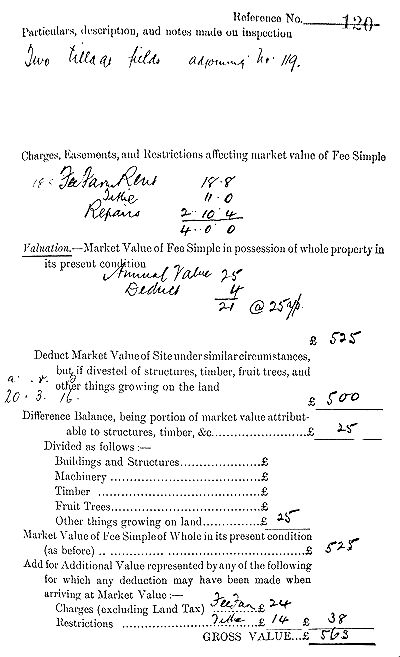 Reference No. 120
Particulars, description, and notes made on inspection
Two tillage fields adjoining No. 119.
Charges, Easements, and Restrictions affecting market value of Fee Simple
Fee Farm Rent 18.8
Tithe 11.0
Repairs 2.10.4
4.0.0
Valuation.—Market Value of Fee Simple in possession of whole property in
its present condition
Annual Value 25
Deduct 4
21 @ 25 yp.
£ 525
Deduct Market Value of Site under similar circumstances,
but if divested of structures, timber, fruit trees, and
a. r. p.
other things growing on the land
20.3.16. £ 500
Difference Balance, being portion of market value attribut-
able to structures, timber, &c.....................£ 25
Divided as follows :—
Buildings and Structures....................£
Machinery ....................................£
Timber ....................................£
Fruit Trees....................................£
Other things growing on land..............£ 25
Market Value of Fee Simple of Whole in its present condition
(as before) .. .................................£ 525
Add for Additional Value represented by any of the following
for which any deduction may have been made when
arriving at Market Value :—
Charges (excluding Land Tax) Fee Farm £ 24
Restrictions .............Tithe £ 14 £ 38
GROSS VALUE...£ 563